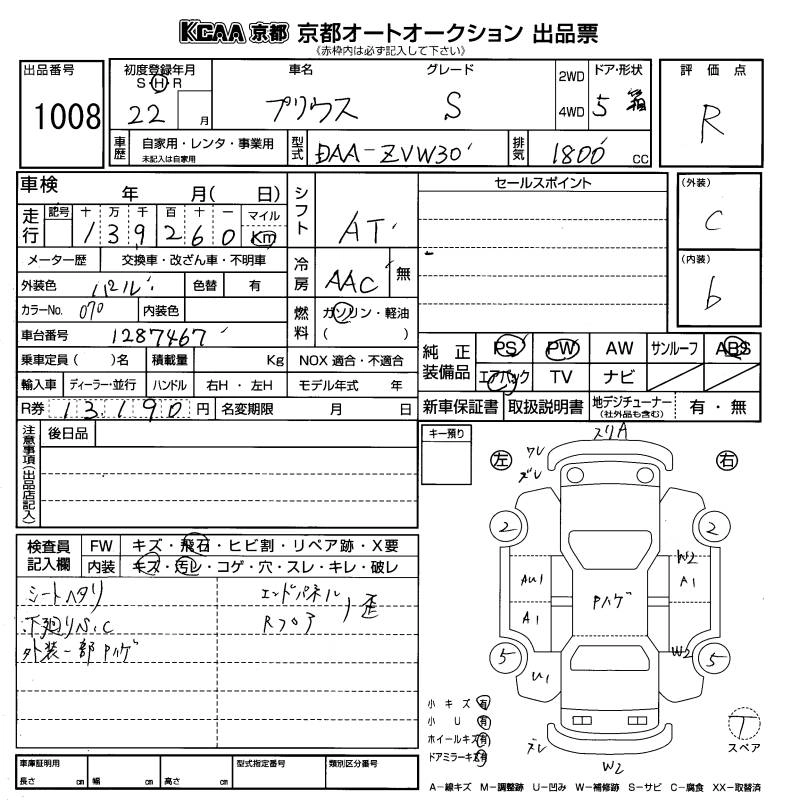 KCAA 京都 京都オートオークション 出品票
《赤枠内は必ず記入して下さい》
出品番号 1008
初度登録年月 S・H・R 22 月
車名 プリウス
グレード S
2WD 4WD
ドア・形状 5 箱
評価点 R
車歴 自家用・レンタ・事業用 未記入は自家用
型式 DAA-ZVW30
排気 1800 cc
車検 年 月( 日)
シフト AT
セールスポイント
(外装) C
走行 記号 十 万 千 百 十 一 マイル Km
139260
メーター歴 交換車・改ざん車・不明車
冷房 AAC 無
(内装) b
外装色 パール 色替 有
カラーNo. 070 内装色
燃料 ガソリン・軽油 ( )
車台番号 1287467
乗車定員( )名 積載量 Kg NOX 適合・不適合
純正装備品 PS PW AW サンルーフ ABS
エアバック TV ナビ
輸入車 ディーラー・並行 ハンドル 右H・左H モデル年式 年
R券 13,190 円 名変期限 月 日
新車保証書 取扱説明書 地デジチューナー (社外品も含む) 有・無
注意事項(出品店記入) 後日品
キー預り
スリA
左 ワレ ズレ
右
2 2
W2
AU1 A1
Pハゲ
A1
W2
5 5
U1
ズレ
W2
検査員記入欄 FW キズ・飛石・ヒビ割・リペア跡・X要
内装 キズ・汚レ・コゲ・穴・スレ・キレ・破レ
シートヘタリ
下廻りS.C
外装一部Pハゲ
エンドパネル
Rフロア
歪
小キズ 有
小U 有
ホイールキズ 有
ドアミラーキズ 有
T
スペア
車庫証明用 長さ cm 幅 cm 高さ cm
型式指定番号
類別区分番号
A-線キズ M-調整跡 U-凹み W-補修跡 S-サビ C-腐食 XX-取替済